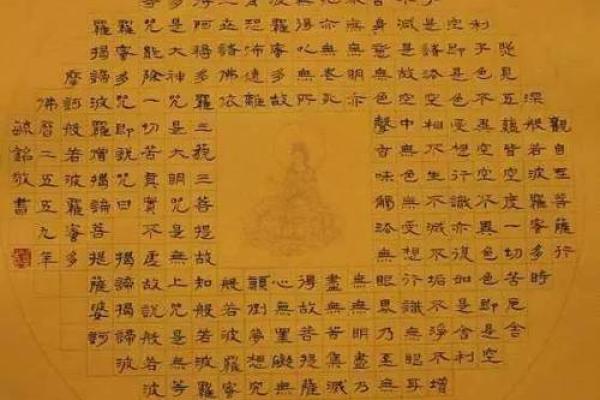 觀自在菩薩行
深般若波羅蜜多時
照見五蘊皆空度一切苦厄舍
利子色不異空空不異色色即是空
空即是色受想行識亦復如是舍利
子是諸法空相不生不滅不垢不淨不增
不減是故空中無色無受想行識無眼耳
身意無色聲香味觸法無眼界乃至無
無無明亦無無明盡乃
亦無老死盡無苦集滅
得以無所得故菩提薩
羅蜜多故心無罣礙無
恐怖遠離顛倒夢想究
世諸佛依般若波羅蜜
阿耨多羅三藐三菩提故知般若波羅
多是大神咒是大明咒是無上咒是無等
等咒能除一切苦真實不虛故說般若波
羅蜜多咒即說咒曰揭諦揭諦波
羅揭諦波羅僧揭諦菩提薩婆訶
摩訶般若波羅蜜多
佛曆二五五九年
毓銘敬書